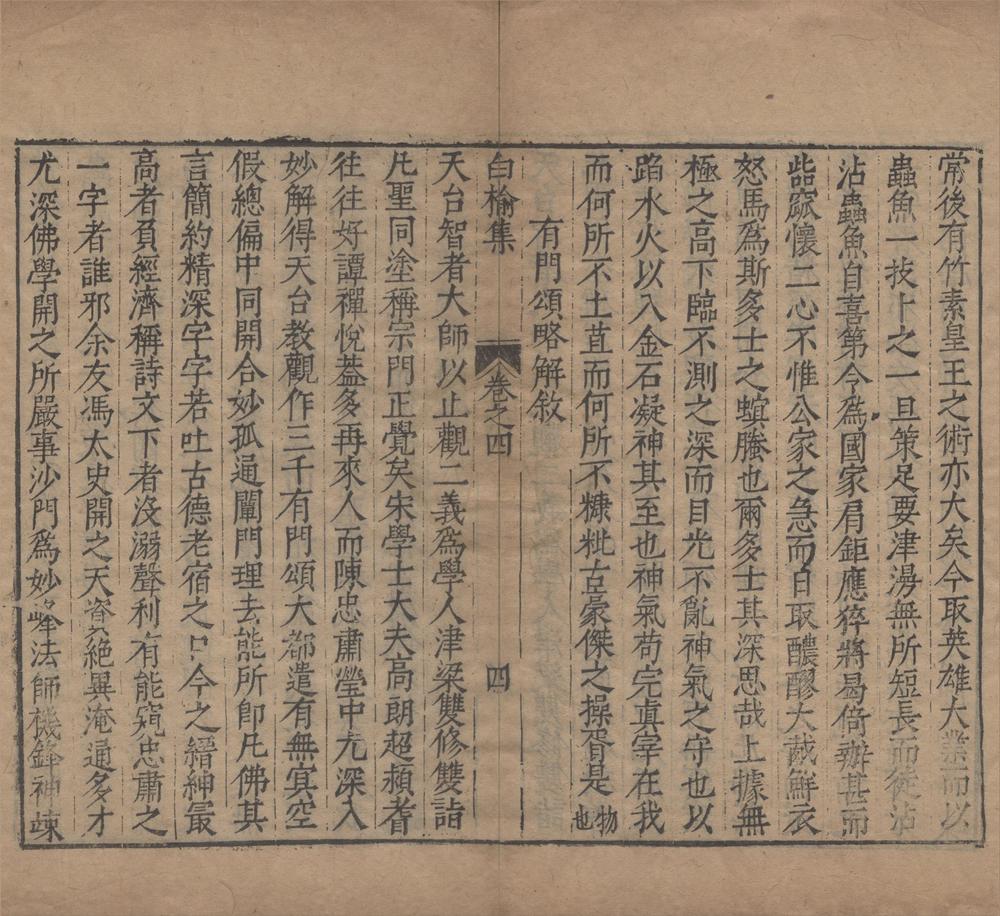 常後有竹素皇王之術亦大矣今取英雄大業而以
蟲魚一技卜之一旦策足要津漫無所短長而徒沾
沾蟲魚自喜第令爲國家肩鉅應猝將曷倚辦甚而
呰窳懷二心不惟公家之急而日取醲醪大胾鮮衣
怒馬爲斯多士之螟螣也爾多士其深思哉上據無
極之高下臨不測之深而目光不亂神氣之守也以
蹈水火以入金石凝神其至也神氣苟完眞宰在我
而何所不土苴而何所不糠粃古豪傑之操胥是物也
有門頌略解敘
白榆集 卷之四 四
天台智者大師以止觀二義爲學人津梁雙修雙詣
凡聖同塗稱宗門正覺矣朱學士大夫高朗超穎者
往往好譚禪悅葢多再來人而陳忠肅瑩中尤深入
妙解得天台教觀作三千有門頌大都遣有無冥空
假總偏中同開合妙孤通闡門理去能所卽凡佛其
言簡約精深字字若吐古德老宿之口今之縉紳最
高者負經濟稱詩文下者沒溺聲利有能窺忠肅之
一字者誰邪余友馮太史開之天資絕異淹通多才
尤深佛學開之所嚴事沙門爲妙峰法師機鋒神竦